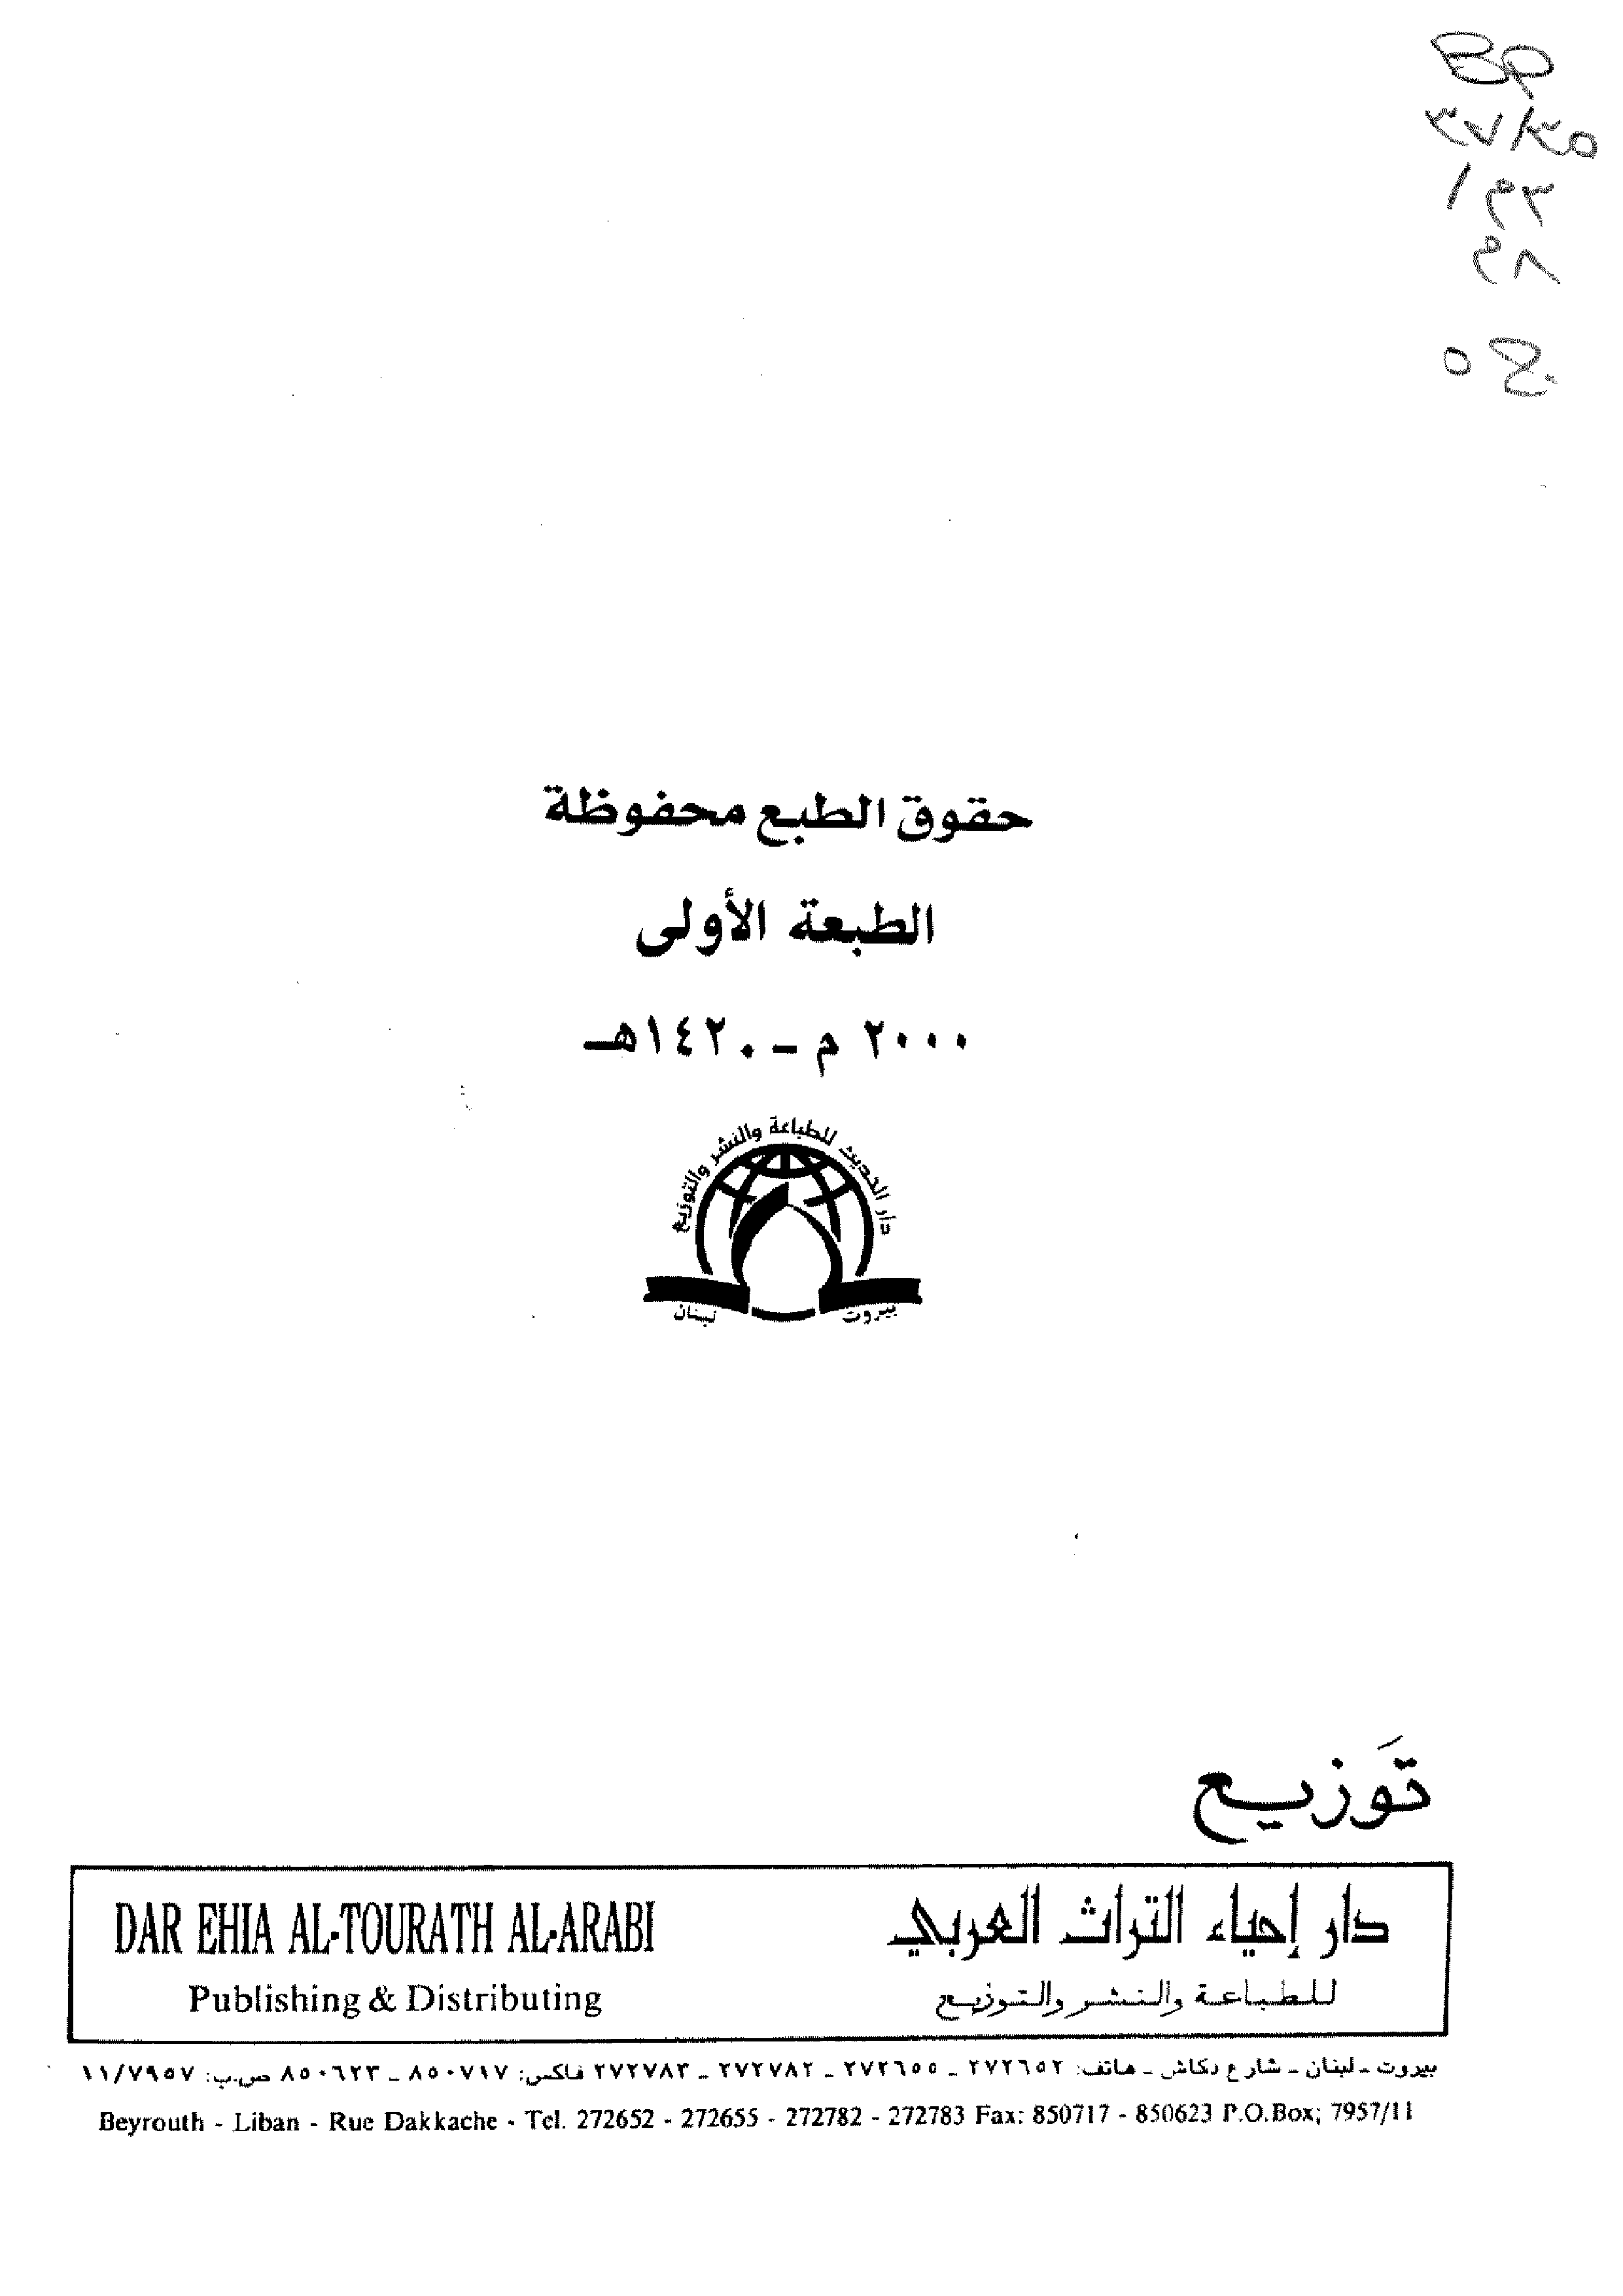 BP
حقوق الطبع محفوظة
الطبعة الأولى
٢٠٠٠ م - ١٤٢٠هـ
دار الحديث للطباعة والنشر والتوزيع
بيروت لبنان
تَوزيع
دار إحياء التراث العربي
للطباعة والنشر والتوزيع
DAR EHIA AL-TOURATH AL-ARABI
Publishing & Distributing
بيروت - لبنان - شارع دكاش - هاتف: ٢٧٢٦٥٢ - ٢٧٢٦٥٥ - ٢٧٢٧٨٢ - ٢٧٢٧٨٣ فاكس: ٨٥٠٧١٧ - ٨٥٠٦٢٣ ص.ب: ١١/٧٩٥٧
Beyrouth - Liban - Rue Dakkache - Tel. 272652 - 272655 - 272782 - 272783 Fax: 850717 - 850623 P.O.Box; 7957/11